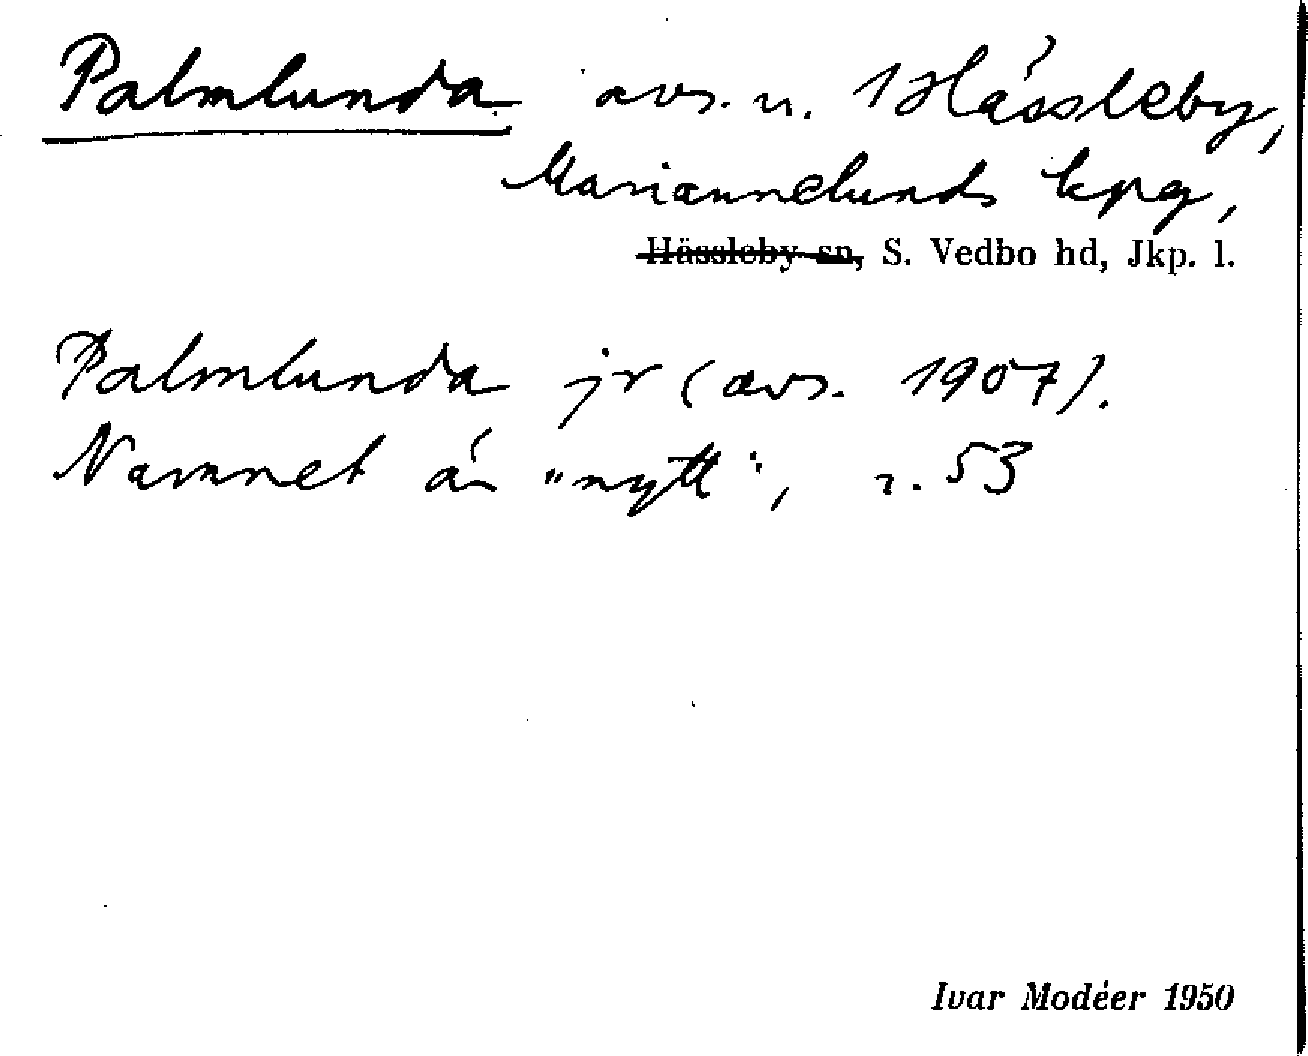 Palmlunda avs. u. 1 Hässleby,
Mariannelunds kpg,
Hässleby sn, S. Vedbo hd, Jkp. l.
Palmlunda jr (avs. 1907).
Namnet är "nytt", r. 53
Ivar Modéer 1950